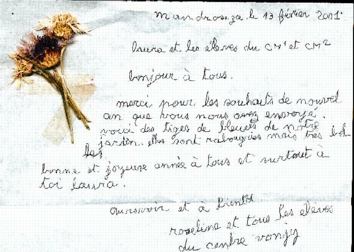 mandrouza le 13 février 2001
laura et les élèves du CM¹ et CM²
bonjour à tous.
merci pour les souhaits de nouvel
an que vous nous avez envoyé.
voici des tiges de bleuets de notre
jardin. elles sont rabougries mais très
bonne et joyeuse année à tous et surtout à
toi laura.
aurevoir et à bientôt
roseline et tous les élèves
du centre vonjy